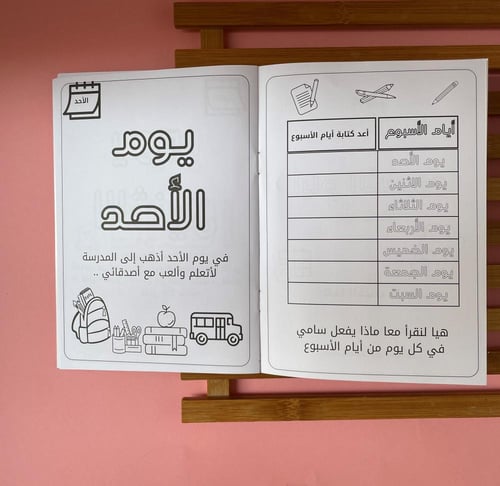 أيام الأسبوع
أعد كتابة أيام الأسبوع
يوم الأحد
يوم الاثنين
يوم الثلاثاء
يوم الأربعاء
يوم الخميس
يوم الجمعة
يوم السبت
هيا لنقرأ معا ماذا يفعل سامي
في كل يوم من أيام الأسبوع
الأحد
يوم
الأحد
في يوم الأحد أذهب إلى المدرسة
لأتعلم وألعب مع أصدقائي ..